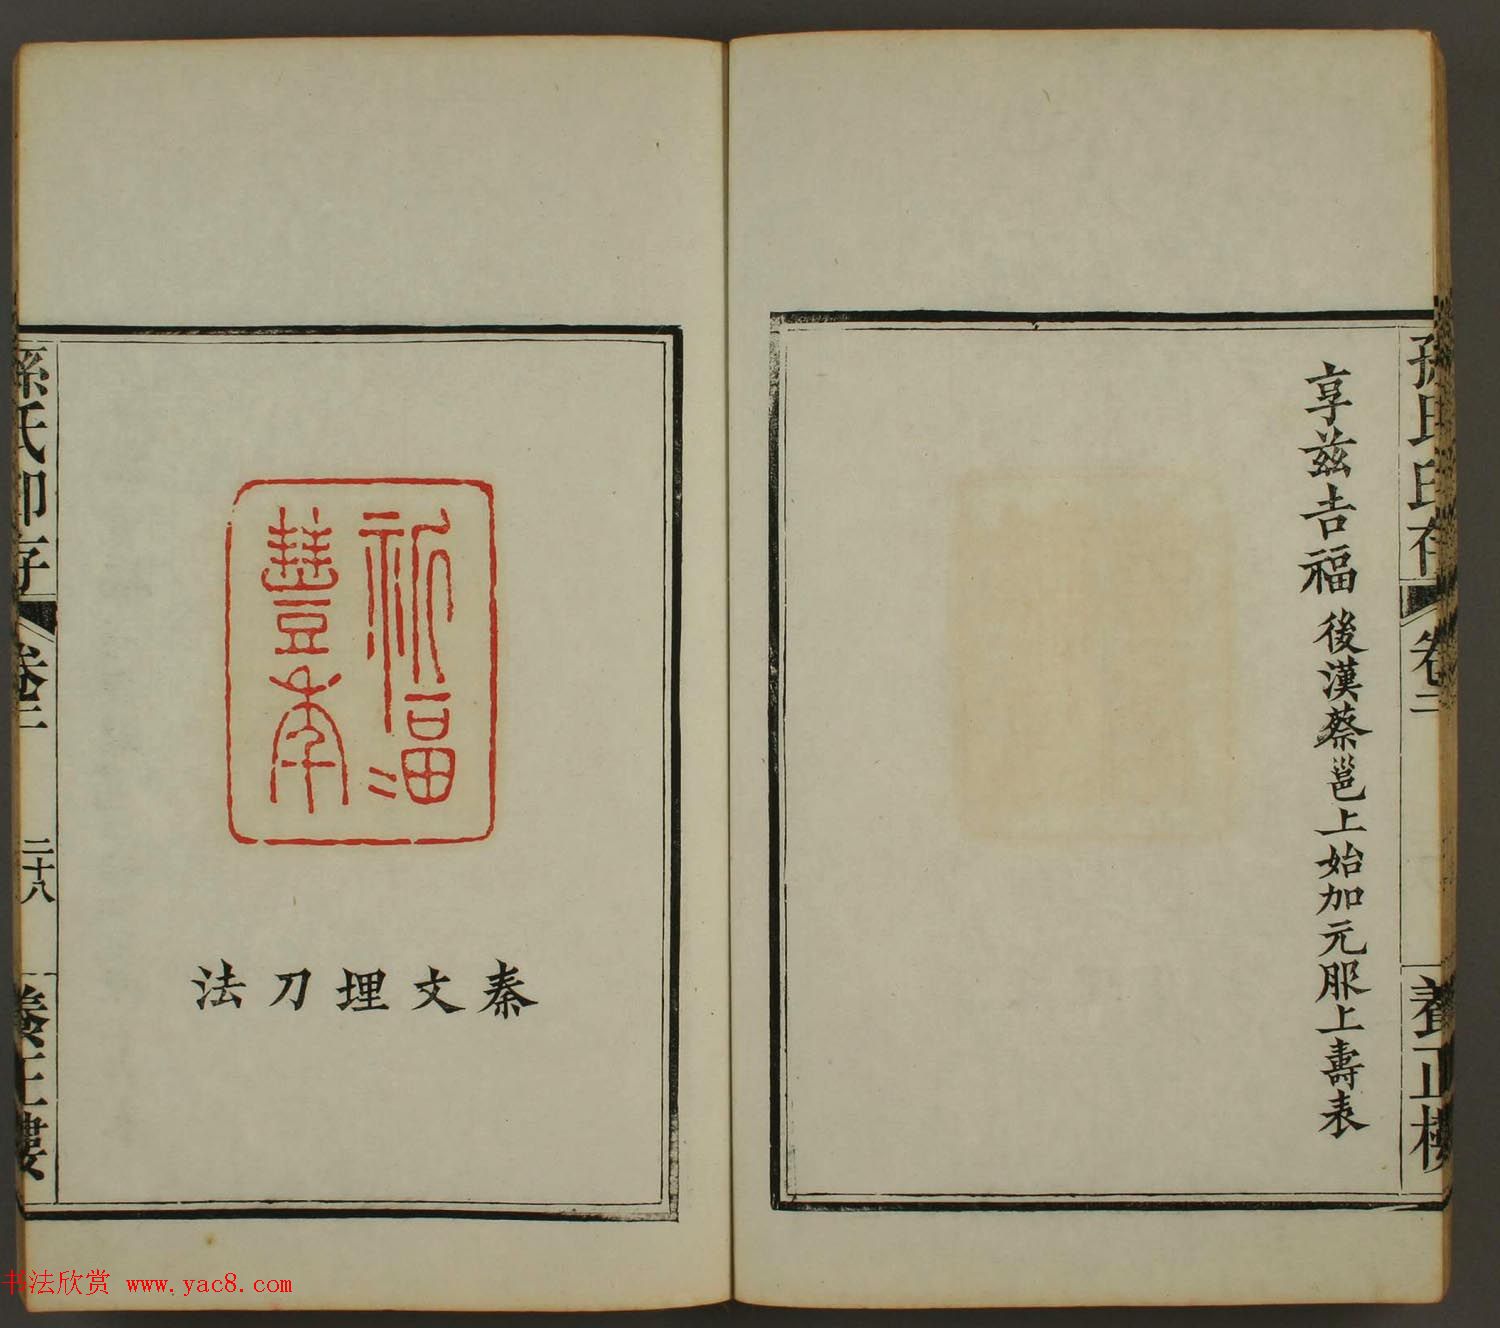 孫氏印存
卷二
養正樓
享茲吉福 後漢蔡邕上始加元服上壽表
祈福
豐年
秦文埋刀法
孫氏印存
卷二
二十八
養正樓
书法欣赏 www.yac8.com